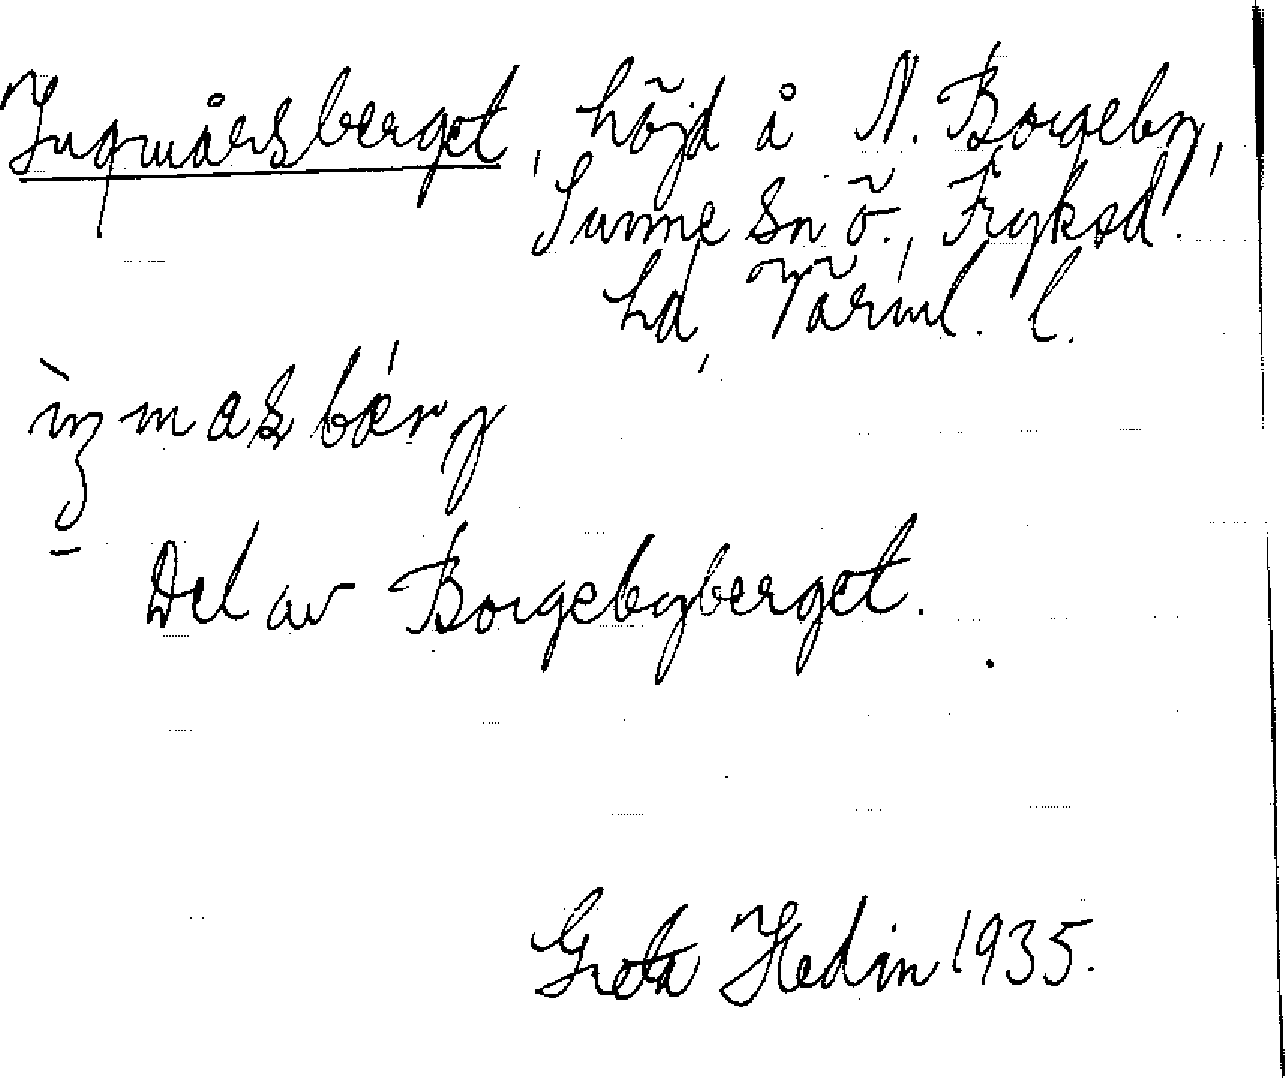 Ingmårsberget, höjd å N. Borgeby,
Sunne sn ö., Fryksd.
hd, Värml. l.
ìŋmasbärj
Del av Borgebyberget.
Greta Hedin 1935.